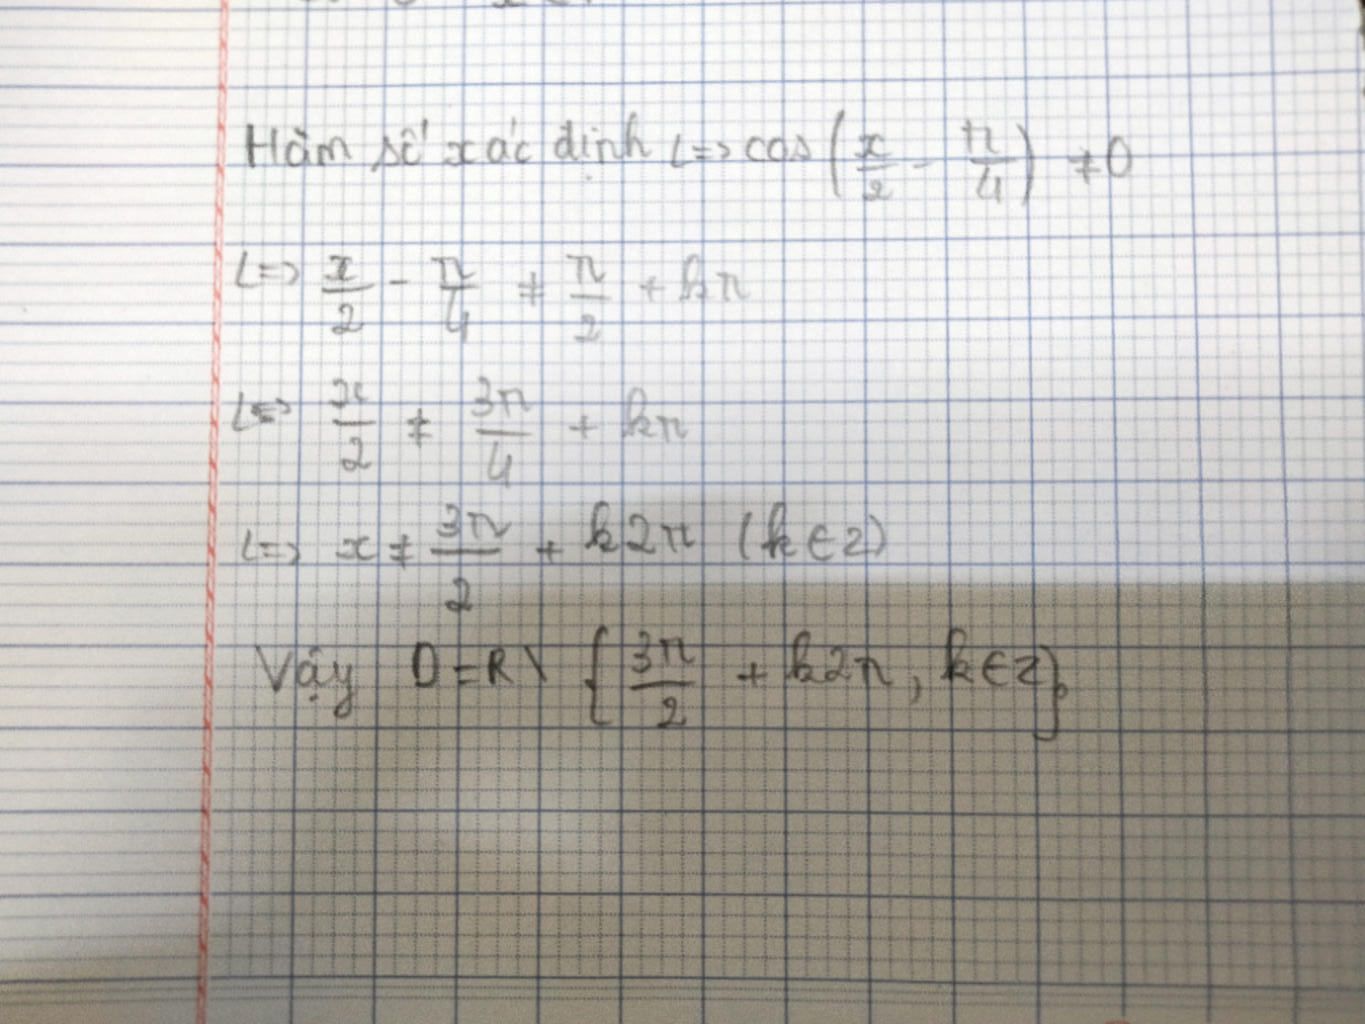 Hàm số xác định <=> cos(x/2 - π/4) ≠ 0
<=> x/2 - π/4 ≠ π/2 + kπ
<=> x/2 ≠ 3π/4 + kπ
<=> x ≠ 3π/2 + k2π (k ∈ Z)
Vậy D = R \ {3π/2 + k2π, k ∈ Z}.